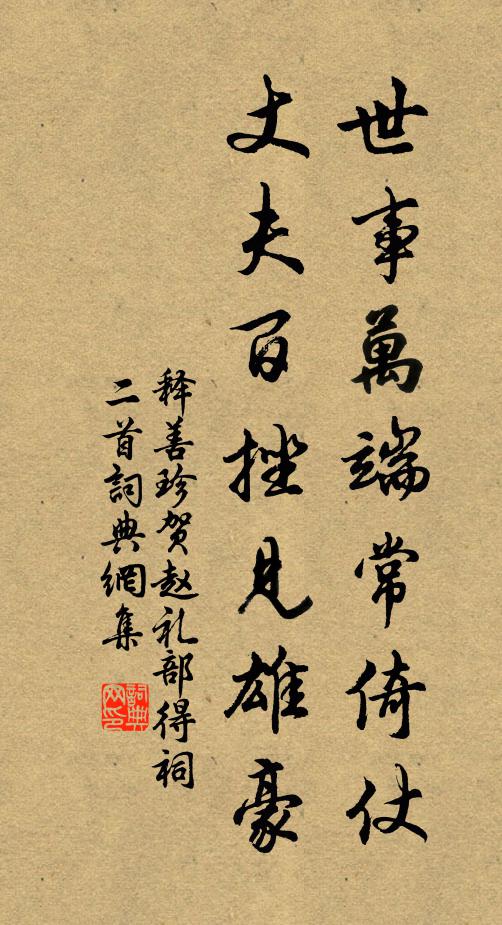 世事萬端常倚仗
丈夫百挫見雄豪
释善珍贺赵礼部得祠
二首詞典網集
詞典网印